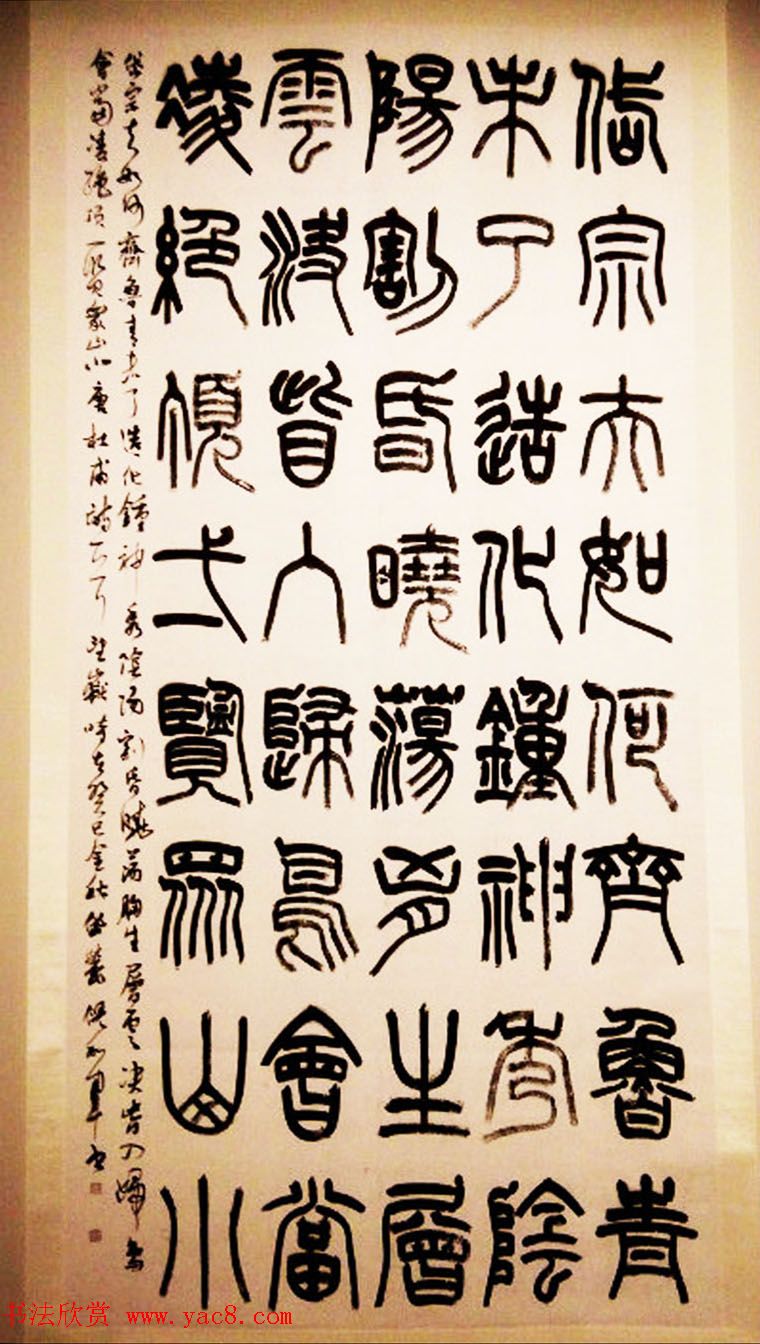 岱宗夫如何齊魯青
未了造化鍾神秀陰
陽割昏曉蕩胷生層
雲決眥入歸鳥會當
凌絕頂弌覽眾山小
岱宗夫如何齊魯青未了造化鍾神秀陰陽割昏曉蕩胸生層雲決眥入歸鳥
會當凌絕頂一覽眾山小唐杜甫詩望嶽時在癸巳金秋岱麓書
书法欣赏 www.yac8.com